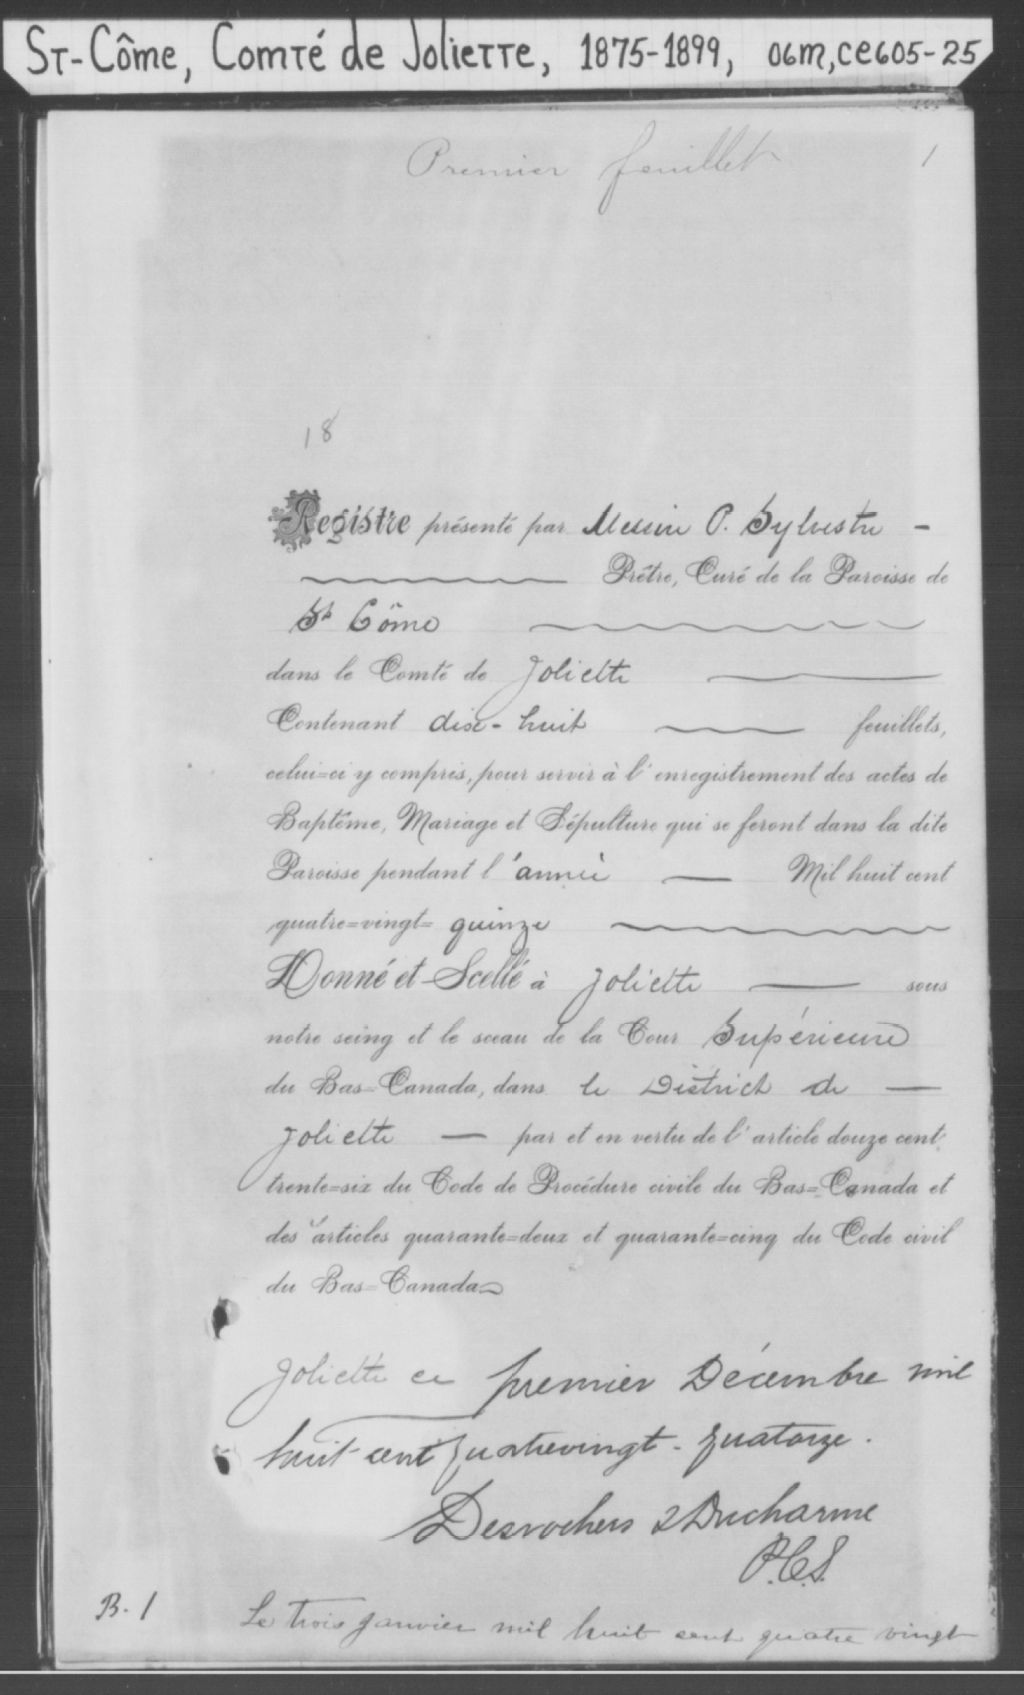 St-Côme, Comté de Joliette, 1875-1899, 06M,CE605-25
Premier feuillet 1
18
Registre présenté par Messire P. Sylvestre -
Prêtre, Curé de la Paroisse de
St Côme
dans le Comté de Joliette
Contenant dix-huit feuillets,
celui=ci y compris, pour servir à l'enregistrement des actes de
Baptême, Mariage et Sépulture qui se feront dans la dite
Paroisse pendant l'année — Mil huit cent
quatre=vingt= quinze
Donné et Scellé à Joliette — sous
notre seing et le sceau de la Cour Supérieure
du Bas=Canada, dans le District de —
Joliette — par et en vertu de l'article douze cent
trente=six du Code de Procédure civile du Bas=Canada et
des articles quarante=deux et quarante=cinq du Code civil
du Bas=Canada
Joliette ce premier Décembre mil
huit cent quatrevingt-quatorze.
Desrochers & Ducharme
P.C.S.
B. 1
Le trois janvier mil huit cent quatre vingt